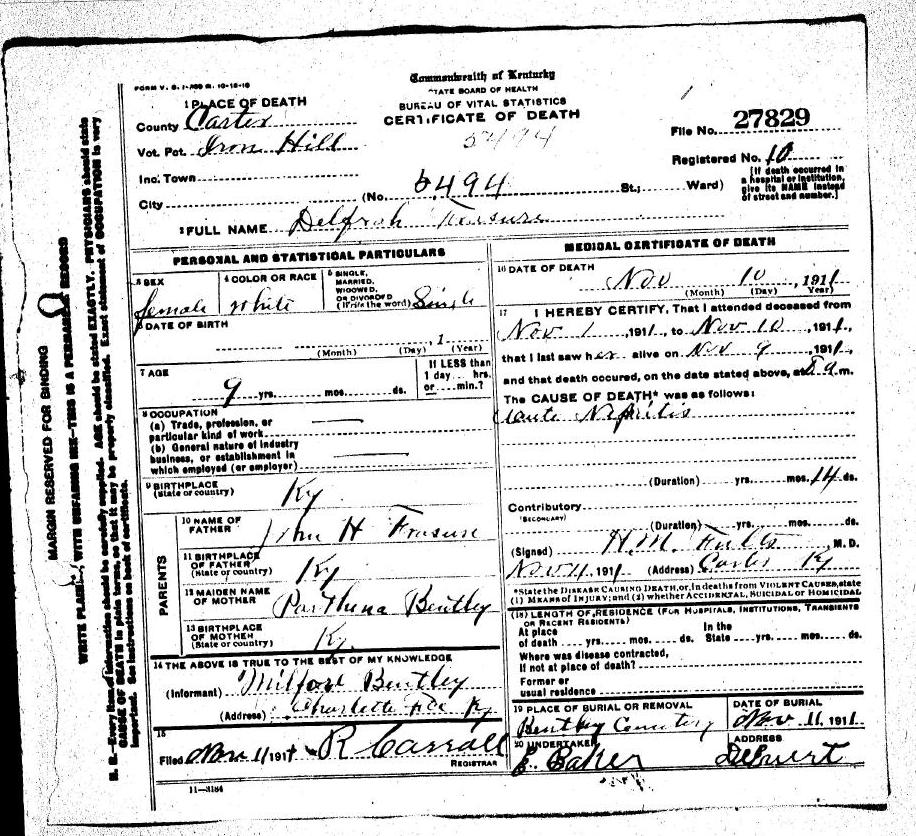 FORM V. S. 1-A
Commonwealth of Kentucky
STATE BOARD OF HEALTH
BUREAU OF VITAL STATISTICS
CERTIFICATE OF DEATH
5494
1 PLACE OF DEATH
County Carter
Vot. Pct. Iron Hill
Inc. Town
City
(No. 5494 St.; Ward)
File No. 27829
Registered No. 10
[If death occurred in
a hospital or institution,
give its NAME instead
of street and number.]
2 FULL NAME
PERSONAL AND STATISTICAL PARTICULARS
3 SEX
female
4 COLOR OR RACE
White
5 SINGLE,
MARRIED,
WIDOWED,
OR DIVORCED
(Write the word) Single
6 DATE OF BIRTH
, 1
(Month) (Day) (Year)
7 AGE
9 yrs. mos. ds.
If LESS than
1 day... hrs.
or... min.?
8 OCCUPATION
(a) Trade, profession, or
particular kind of work
(b) General nature of industry
business, or establishment in
which employed (or employer)
9 BIRTHPLACE
(State or country) Ky
PARENTS
10 NAME OF
FATHER John H
11 BIRTHPLACE
OF FATHER
(State or country) Ky
12 MAIDEN NAME
OF MOTHER Parthena Bentley
13 BIRTHPLACE
OF MOTHER
(State or country) Ky.
14 THE ABOVE IS TRUE TO THE BEST OF MY KNOWLEDGE
(Informant) Milford Bentley
(Address) Charlotte Fce Ky
15
Filed Nov 11 1911 R Carroll
REGISTRAR
11-3184
MEDICAL CERTIFICATE OF DEATH
16 DATE OF DEATH
Nov 10, 1911
(Month) (Day) Year)
17 I HEREBY CERTIFY, That I attended deceased from
Nov 1, 1911, to Nov 10, 1911,
that I last saw her alive on Nov 9, 1911
and that death occured, on the date stated above, at 8 a.m.
The CAUSE OF DEATH* was as follows:
acute Nephritis
(Duration) yrs. mos. 14 ds.
Contributory
(SECONDARY)
(Duration) yrs. mos. ds.
(Signed) H. M. Fults M.D.
Nov 11, 1911 (Address) Carter Ky
*State the DISEASE CAUSING DEATH, or, in deaths from VIOLENT CAUSES, state
(1) MEANS OF INJURY; and (2) whether ACCIDENTAL, SUICIDAL or HOMICIDAL
(18) LENGTH OF RESIDENCE (FOR HOSPITALS, INSTITUTIONS, TRANSIENTS
OR RECENT RESIDENTS)
At place In the
of death yrs. mos. ds. State yrs. mos. ds.
Where was disease contracted,
if not at place of death?
Former or
usual residence
19 PLACE OF BURIAL OR REMOVAL
Bentley Cemetery
DATE OF BURIAL
Nov 11, 1911
20 UNDERTAKER
E. Baker
ADDRESS
MARGIN RESERVED FOR BINDING
WRITE PLAINLY, WITH UNFADING INK—THIS IS A PERMANENT RECORD
N. B.—Every item of information should be carefully supplied. AGE should be stated EXACTLY. PHYSICIANS should state
CAUSE OF DEATH in plain terms, so that it may be properly classified. Exact statement of OCCUPATION is very
important. See instructions on back of certificate.